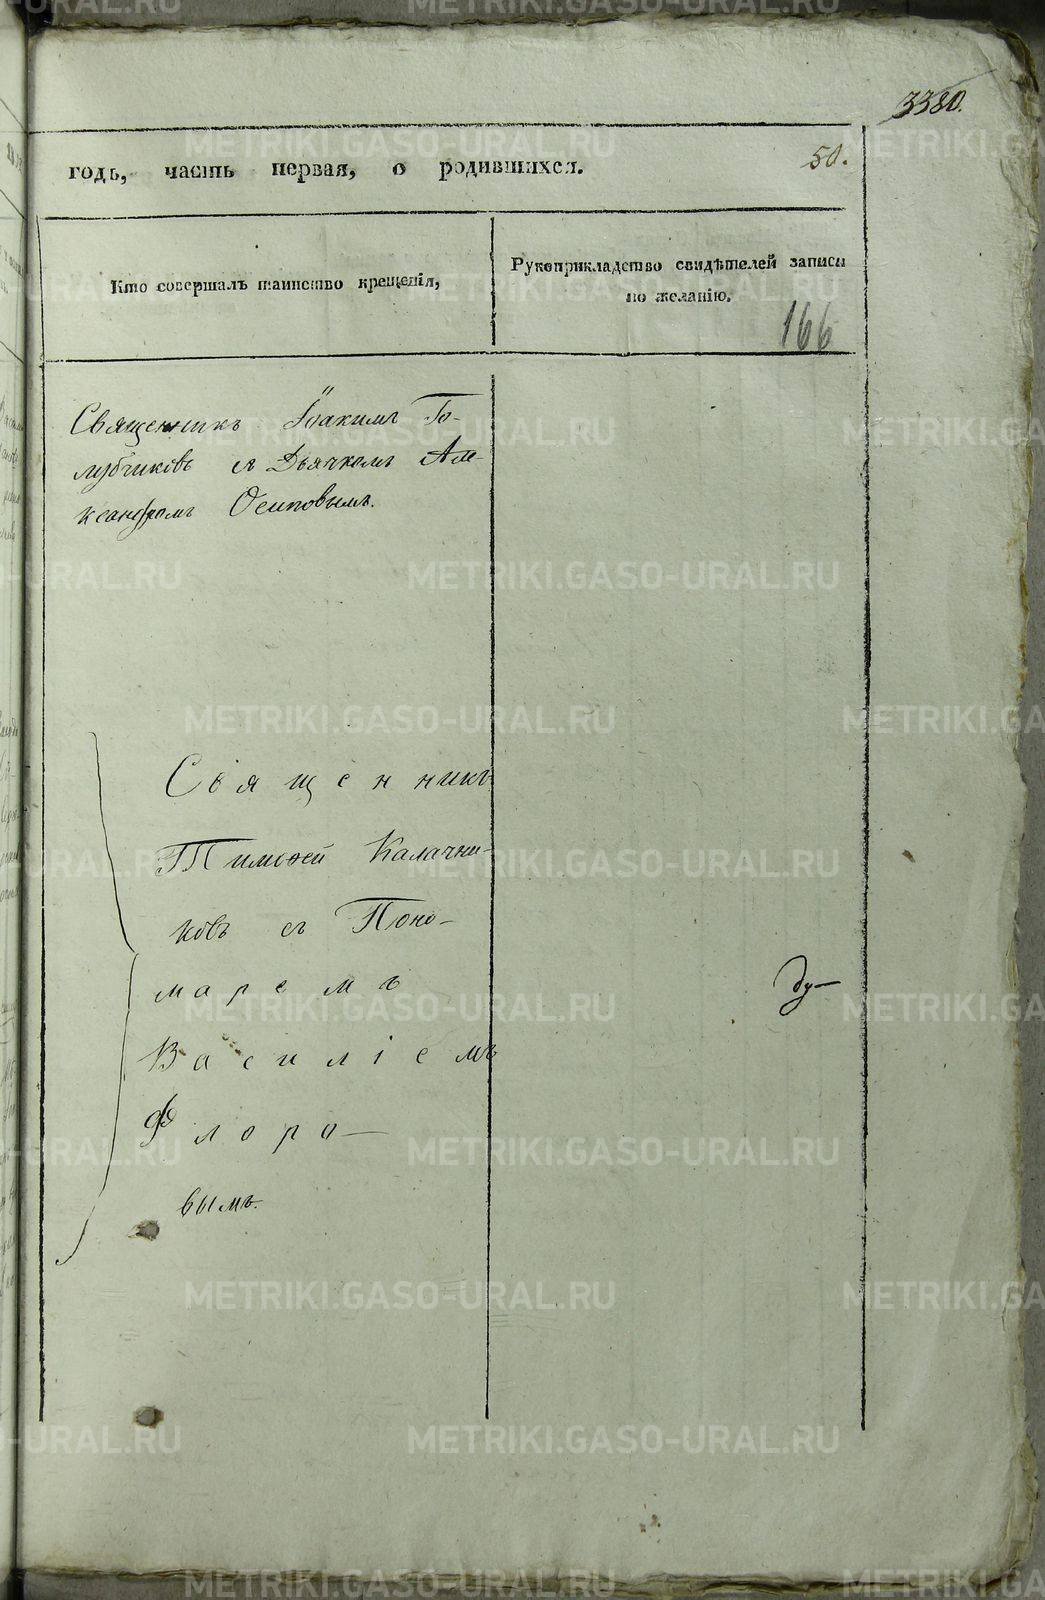 3380.
годъ, часть первая, о родившихся.
50.
Кто совершалъ таинство крещенія,
Рукоприкладство свидѣтелей записи
по желанію.
166
Священникъ Іоакимъ Го-
лубчиковъ съ Дьячкомъ Але-
ксандромъ Осиповымъ.
Священникъ
Тимоѳей Калачни-
ковъ съ Поно-
маремъ
Василіемъ
Флоро-
вымъ.
ду-
METRIKI.GASO-URAL.RU